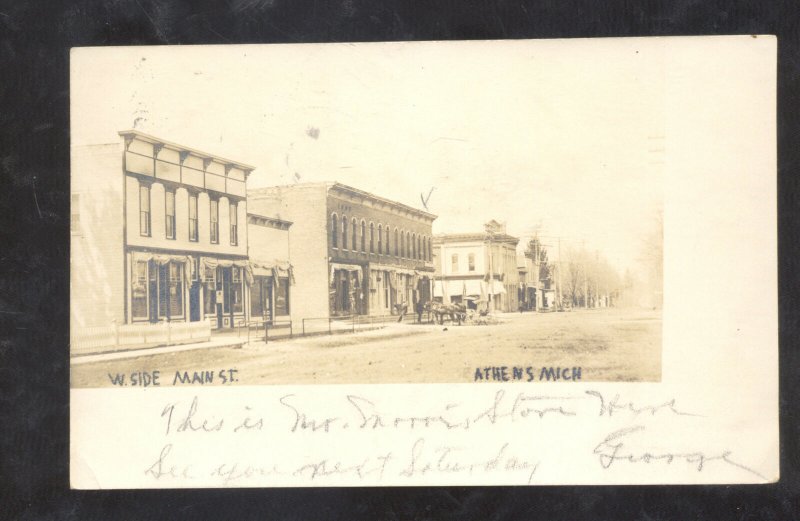 W. SIDE MAIN ST. ATHENS MICH
This is Mr. Morris Store Here
See you next Saturday George